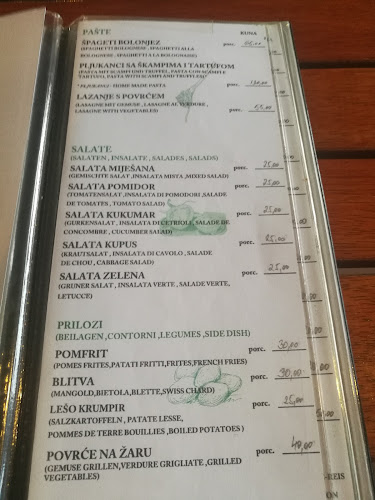 PAŠTE KUNA
ŠPAGETI BOLONJEZ porc.
(SPAGHETTI BOLOGNESE , SPAGHETTI ALLA
BOLOGNESE , SPAGHETTI A LA BOLOGNAISE)
PLJUKANCI SA ŠKAMPIMA I TARTUFOM
(PASTA MIT SCAMPI UND TRUFFEL, PASTA CON SCAMPI E
TARTUFI, PASTA WITH SCAMPI AND TRUFFLE)
* PLJUKANCI - HOME MADE PASTA porc.
LAZANJE S POVRĆEM
(LASAGNE MIT GEMUSE , LASAGNE AL VERDURE , porc.
LASAGNE WITH VEGETABLES)
SALATE
(SALATEN , INSALATE , SALADES , SALADS)
SALATA MIJEŠANA porc. 25,00
(GEMISCHTE SALAT , INSALATA MISTA , MIXED SALAD)
SALATA POMIDOR porc. 25,00
(TOMATENSALAT , INSALATA DI POMODORI , SALADE
DE TOMATES , TUMATO SALAD)
SALATA KUKUMAR porc. 25,00
(GURKENSALAT , INSALATA DI CETRIOLE , SALADE DE
CONCOMBRE , CUCUMBER SALAD)
SALATA KUPUS porc. 25,00
(KRAUTSALAT , INSALATA DI CAVOLO , SALADE
DE CHOU , CABBAGE SALAD)
SALATA ZELENA porc. 25,00
(GRUNER SALAT , INSALATA VERTE , SALADE VERTE,
LETUCCE)
PRILOZI
(BEILAGEN , CONTORNI , LEGUMES , SIDE DISH)
POMFRIT porc. 30,00
(POMES FRITES,PATATI FRITTI,FRITES,FRENCH FRIES)
BLITVA porc. 30,00
(MANGOLD,BIETOLA,BLETTE,SWISS CHARD)
LEŠO KRUMPIR porc. 25,00
(SALZKARTOFFELN , PATATE LESSE,
POMMES DE TERRE BOUILLIES ,BOILED POTATOES )
POVRĆE NA ŽARU porc. 40,00
(GEMUSE GRILLEN,VERDURE GRIGLIATE , GRILLED
VEGETABLES)